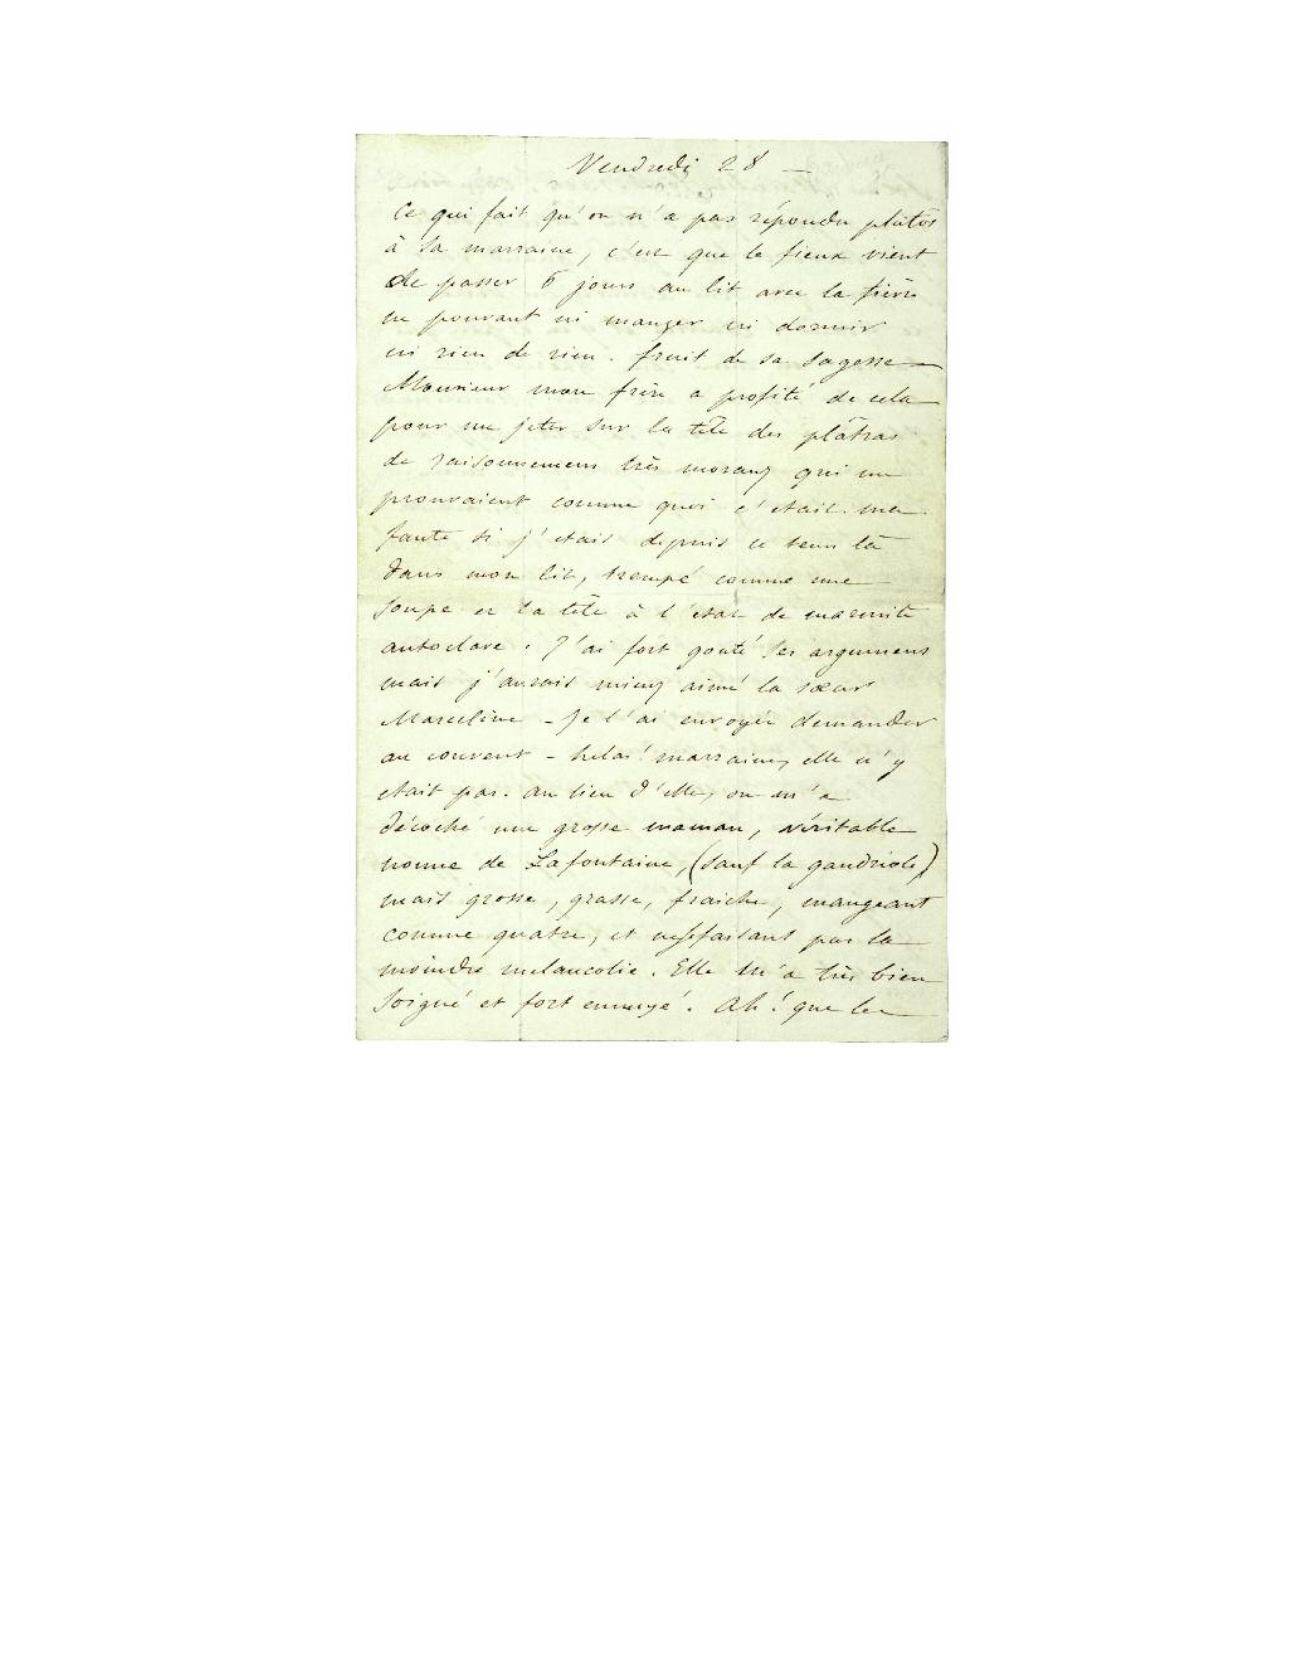 Vendredi 28 —
Ce qui fait qu'on n'a pas répondu plutôt
à sa marraine, c'est que le fieux vient
de passer 6 jours au lit avec la fièvre
ne pouvant ni manger ni dormir
ni rien de rien. fruit de sa sagesse —
Monsieur mon frère a profité de cela
pour me jeter sur la tête des plâtras
de raisonnemens très moraux qui me
prouvaient comme quoi c'etait ma
faute si j'etais depuis ce tems là
dans mon lit, trempé comme une
soupe et la tête à l'etat de marmite
autoclave. J'ai fort gouté ses argumens
mais j'aurais mieux aimé la sœur
Marceline - Je l'ai envoyée demander
au couvent - helas! marraine, elle n'y
etait pas. au lieu d'elle, on m'a
décoché une grosse maman, véritable
nonne de Lafontaine, (sauf la gaudriole)
mais grosse, grasse, fraiche, mangeant
comme quatre, et ne se faisant pas la
moindre melancolie. Elle m'a très bien
soigné et fort ennuyé. Ah! que les